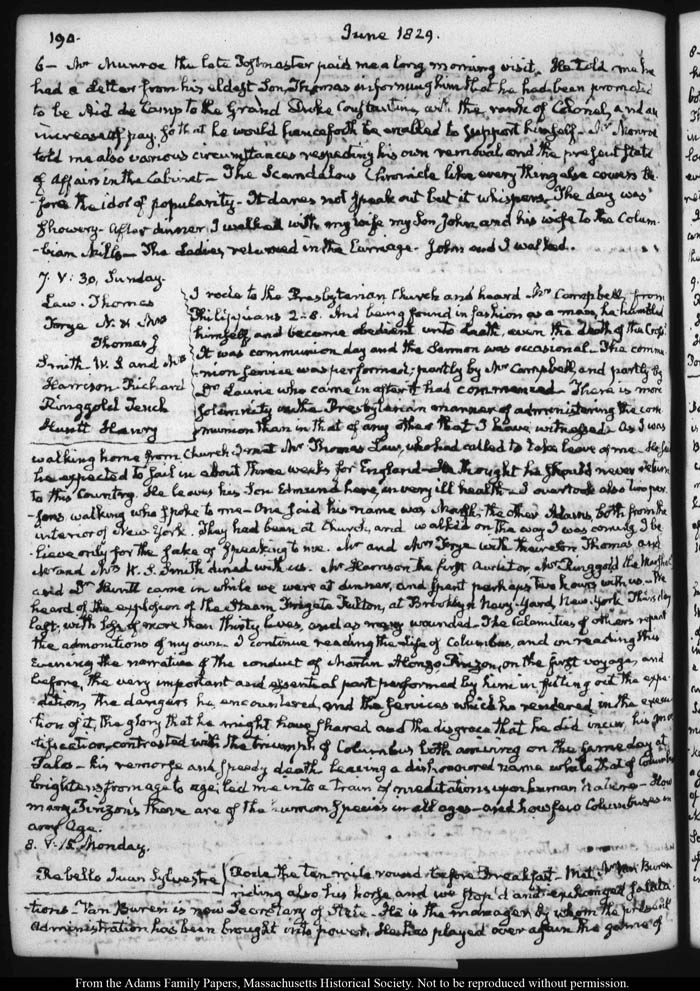 190.
June 1829.
6— Mr Munroe the late Postmaster paid me a long morning visit. He told me he
had a Letter from his eldest Son, Thomas informing him that he had been promoted
to be Aid de Camp to the Grand Duke Constantine, with the rank of Colonel, and an
increase of pay, so that he would henceforth be enabled to support himself— Mr Munroe
told me also various circumstances respecting his own removal and the present state
of Affairs in the Cabinet— The Scandalous Chronicle like every thing else cowers be-
-fore the idol of popularity— It dares not speak out but it whispers. The day was
showery— After dinner, I walked with my wife my Son John, and his wife to the Colum-
-bian Mills— The Ladies returned in the Carriage— John and I walked.
7. V: 30. Sunday.
Law. Thomas
Frye N. & Mrs
Thomas J
Smith W. S and Mrs
Harrison Richard
Ringgold Tench
Huntt Henry
I rode to the Presbyterian Church and heard Mr Campbell, from
Philippians 2-8. And being found in fashion as a man, he humbled
himself, and became obedient unto death, even the death of the Cross
It was communion day and the Sermon was occasional— The commu-
-nion service was performed; partly by Mr Campbell, and partly by
Dr Laurie who came in after it had commenced— There is more
solemnity in the Presbyterian manner of administering the com-
-munion than in that of any other that I have witnessed. As I was
walking home from Church, I met Mr Thomas Law, who had called to take leave of me— He said
he expected to sail in about three weeks for England— He thought he should never return
to this Country. He leaves his Son Edmund here, in very ill health— I overtook also two per-
-sons walking who spoke to me— One said his name was the other Adams both from the
interior of New-York. They had been at Church, and walked on the way I was coming, I be-
-lieve only for the sake of speaking to me. Mr and Mrs Frye with their Son Thomas and
Mr and Mrs W. S. Smith dined with us. Mr Harrison the first Auditor, Mr Ringgold the Marshal
and Dr Huntt came in while we were at dinner, and spent perhaps two hours with us— We
heard of the explosion of the Steam Frigate Fulton, at Brooklyn Navy-Yard, New-York Thursday
last; with loss of more than thirty lives, and as many wounded. The Calamities of others repeat
the admonitions of my own— I continue reading the Life of Columbus, and on reading this
Evening the narrative of the conduct of Martin Alonzo Pinzon, on the first voyage, and
before, the very important and essential part performed by him in fitting out the expe-
-dition, the dangers he encountered, and the services which he rendered in the execu-
-tion of it, the glory that he might have shared and the disgrace that he did incur, his mor-
-tification, contrasted with the triumph of Columbus both arriving on the same day at
Palos— his remorse and speedy death leaving a dishonoured name while that of Columbus
brightens from age to age; led me into a train of meditations upon human Nature— How
many Pinzons there are of the human Species in all ages— and how few Columbuses in
any Age.
8. V: 15. Monday.
Rebello Juan Sylvestre
Rode the ten mile round before Breakfast— Met Mr Van Buren
riding also his horse, and we stop'd and exchanged saluta-
-tions— Van Buren is now Secretary of State— He is the manager by whom the present
Administration has been brought into power. He has played over again the game of
From the Adams Family Papers, Massachusetts Historical Society. Not to be reproduced without permission.